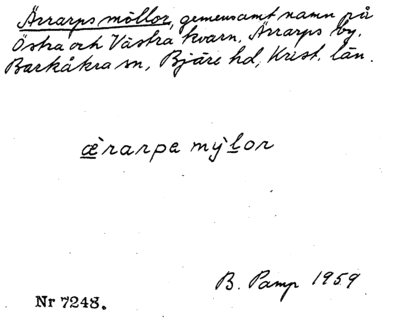 Ärrarps möllor, gemensamt namn på
Östra och Västra kvarn, Ärrarps by.
Barkåkra sn, Bjäre hd, Krist. län.
æ̀rarpa mỳlor
B. Pamp 1959
Nr 7248.